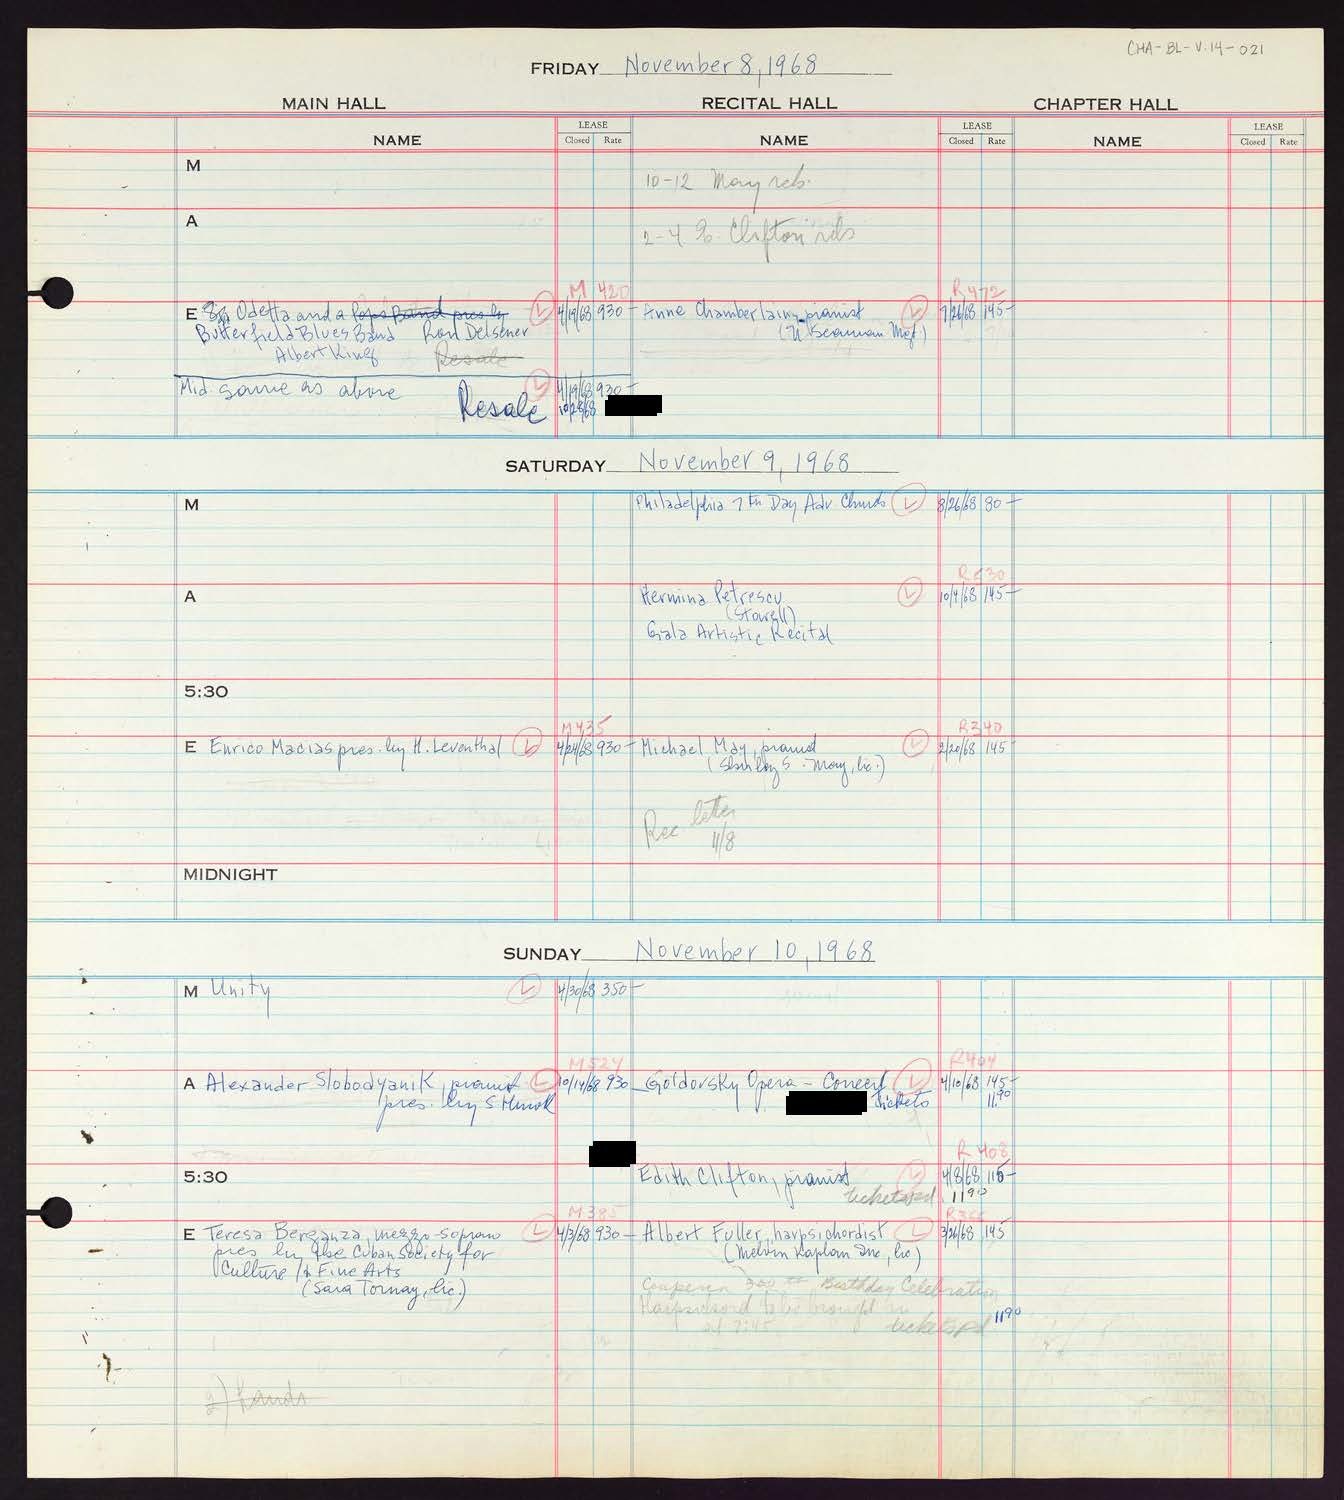 CHA-BL-V.14-021
FRIDAY November 8, 1968
MAIN HALL RECITAL HALL CHAPTER HALL
NAME LEASE Closed Rate NAME LEASE Closed Rate NAME LEASE Closed Rate
M
10-12 May reh.
A
2-4 Clifton reh
M 420
R 472
E Odetta and a Pops Band pres by 4/19/68 930-
Anne Chamberlain, pianist 7/26/68 145-
Butterfield Blues Band Ron Delsener
Albert King Resale
Mid same as above 4/19/68 930-
Resale 10/28/68
SATURDAY November 9, 1968
M
Philadelphia 7th Day Adv Church 8/26/68 80-
R 530
A
Hermina Petrescu 10/4/68 145-
(Stowell)
Gala Artistic Recital
5:30
M 435
R 340
E Enrico Macias pres. by H. Leventhal 4/24/68 930-
Michael May, pianist 2/20/68 145-
Rec letter
11/8
MIDNIGHT
SUNDAY November 10, 1968
M Unity 4/30/68 350-
M 524
R 404
A Alexander Slobodyanik, pianist 10/14/68 930
Goldovsky Opera - Concert 4/10/68 145-
pres. by S Hurok
tickets 11.90
R 408
5:30
Edith Clifton, pianist 4/8/68 115-
tickets pd. 11 90
M 385
E Teresa Berganza, mezzo-soprano 4/3/68 930-
Albert Fuller, harpsichordist 3/26/68 145
pres by the Cuban Society for
(Melvin Kaplan Inc, lic)
Culture & Fine Arts
(Sara Tornay, lic.)
Couperin 300th Birthday Celebration
Harpsichord to be brought in
at 7:45 tickets pd 11 90